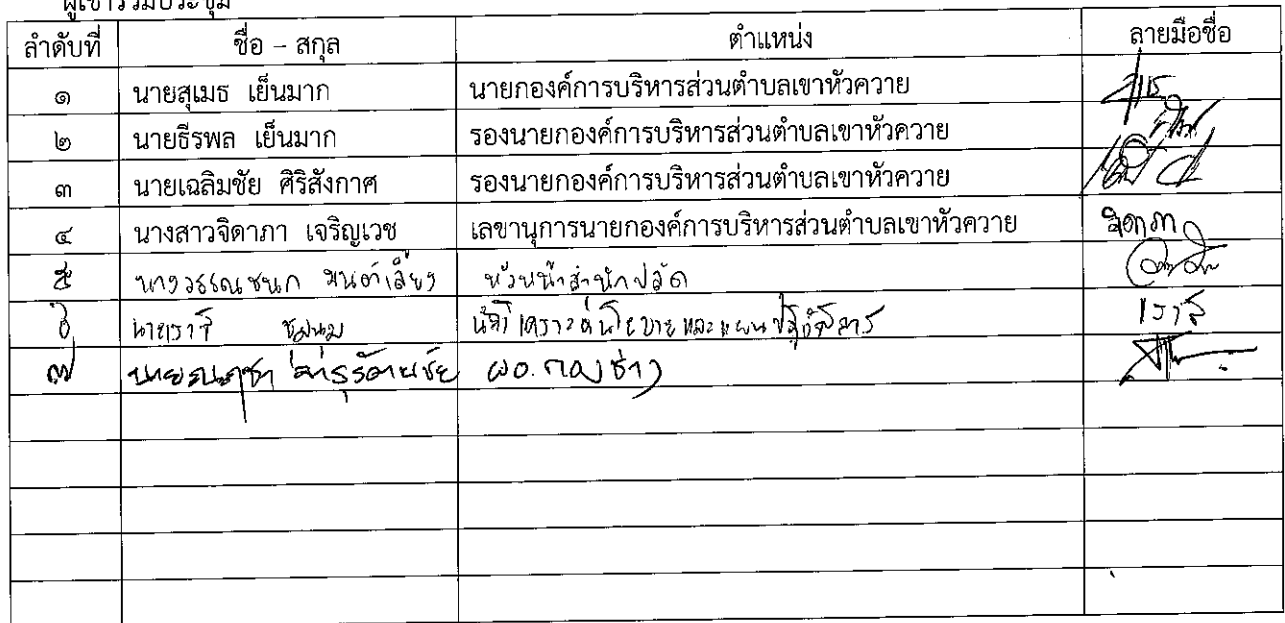 ผู้เข้าร่วมประชุม
ลำดับที่ ชื่อ – สกุล ตำแหน่ง ลายมือชื่อ
๑ นายสุเมธ เย็นมาก นายกองค์การบริหารส่วนตำบลเขาหัวควาย
๒ นายธีรพล เย็นมาก รองนายกองค์การบริหารส่วนตำบลเขาหัวควาย
๓ นายเฉลิมชัย ศิริสังกาศ รองนายกองค์การบริหารส่วนตำบลเขาหัวควาย
๔ นางสาวจิดาภา เจริญเวช เลขานุการนายกองค์การบริหารส่วนตำบลเขาหัวควาย จิดาภา
๕ นางวรรณชนก หัวหน้าสำนักปลัด
๖ นักวิเคราะห์นโยบายและแผน
๗ ผอ.กองช่าง